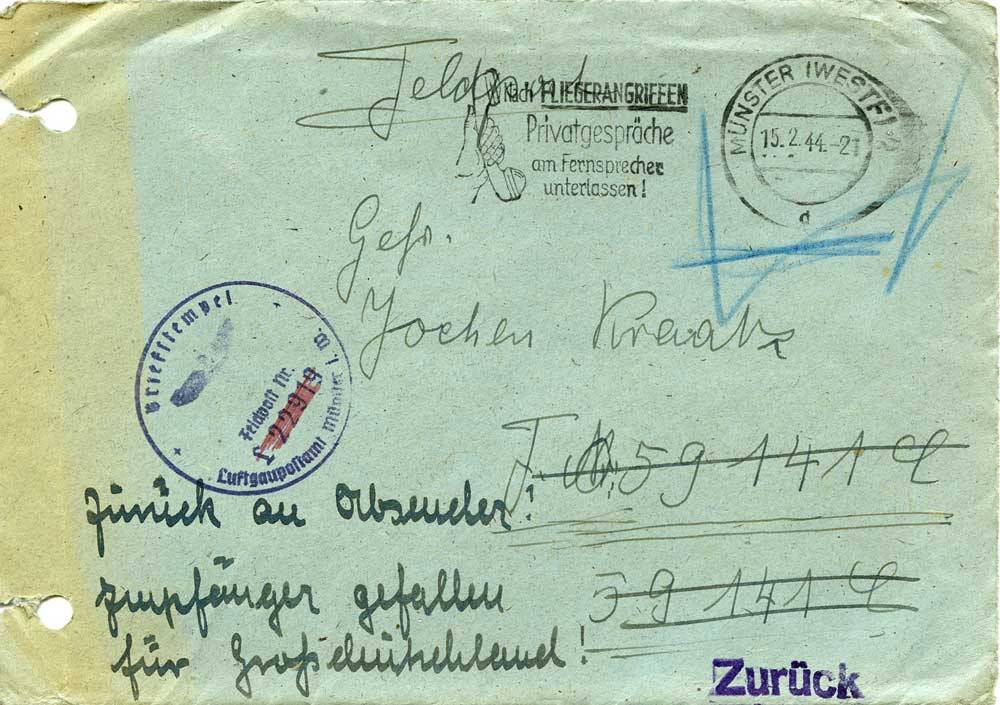 Feldpost
Nach FLIEGERANGRIFFEN
Privatgespräche
am Fernsprecher
unterlassen!
MÜNSTER (WESTF) 2
15.2.44.-21
d
Gefr.
Jochen Kraatz
Briefstempel
Feldpost Nr.
L 22919
Luftgaupostamt Münster i. W.
59141 C
Zurück an Absender!
59141 C
Empfänger gefallen
für Großdeutschland!
Zurück